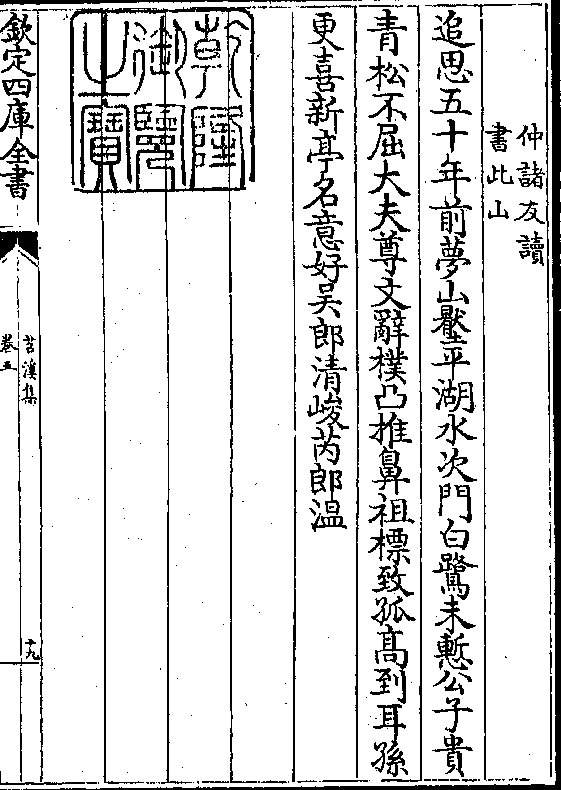 仲諸友讀
書此山
追思五十年前夢山壓平湖水次門白鷺未慙公子貴
青松不屈大夫尊文辭樸凸推鼻祖標致孤高到耳孫
更喜新亭名意好吴郎清峻芮郎温
乾隆
御覽
之寶
欽定四庫全書
苕溪集
卷五
十九